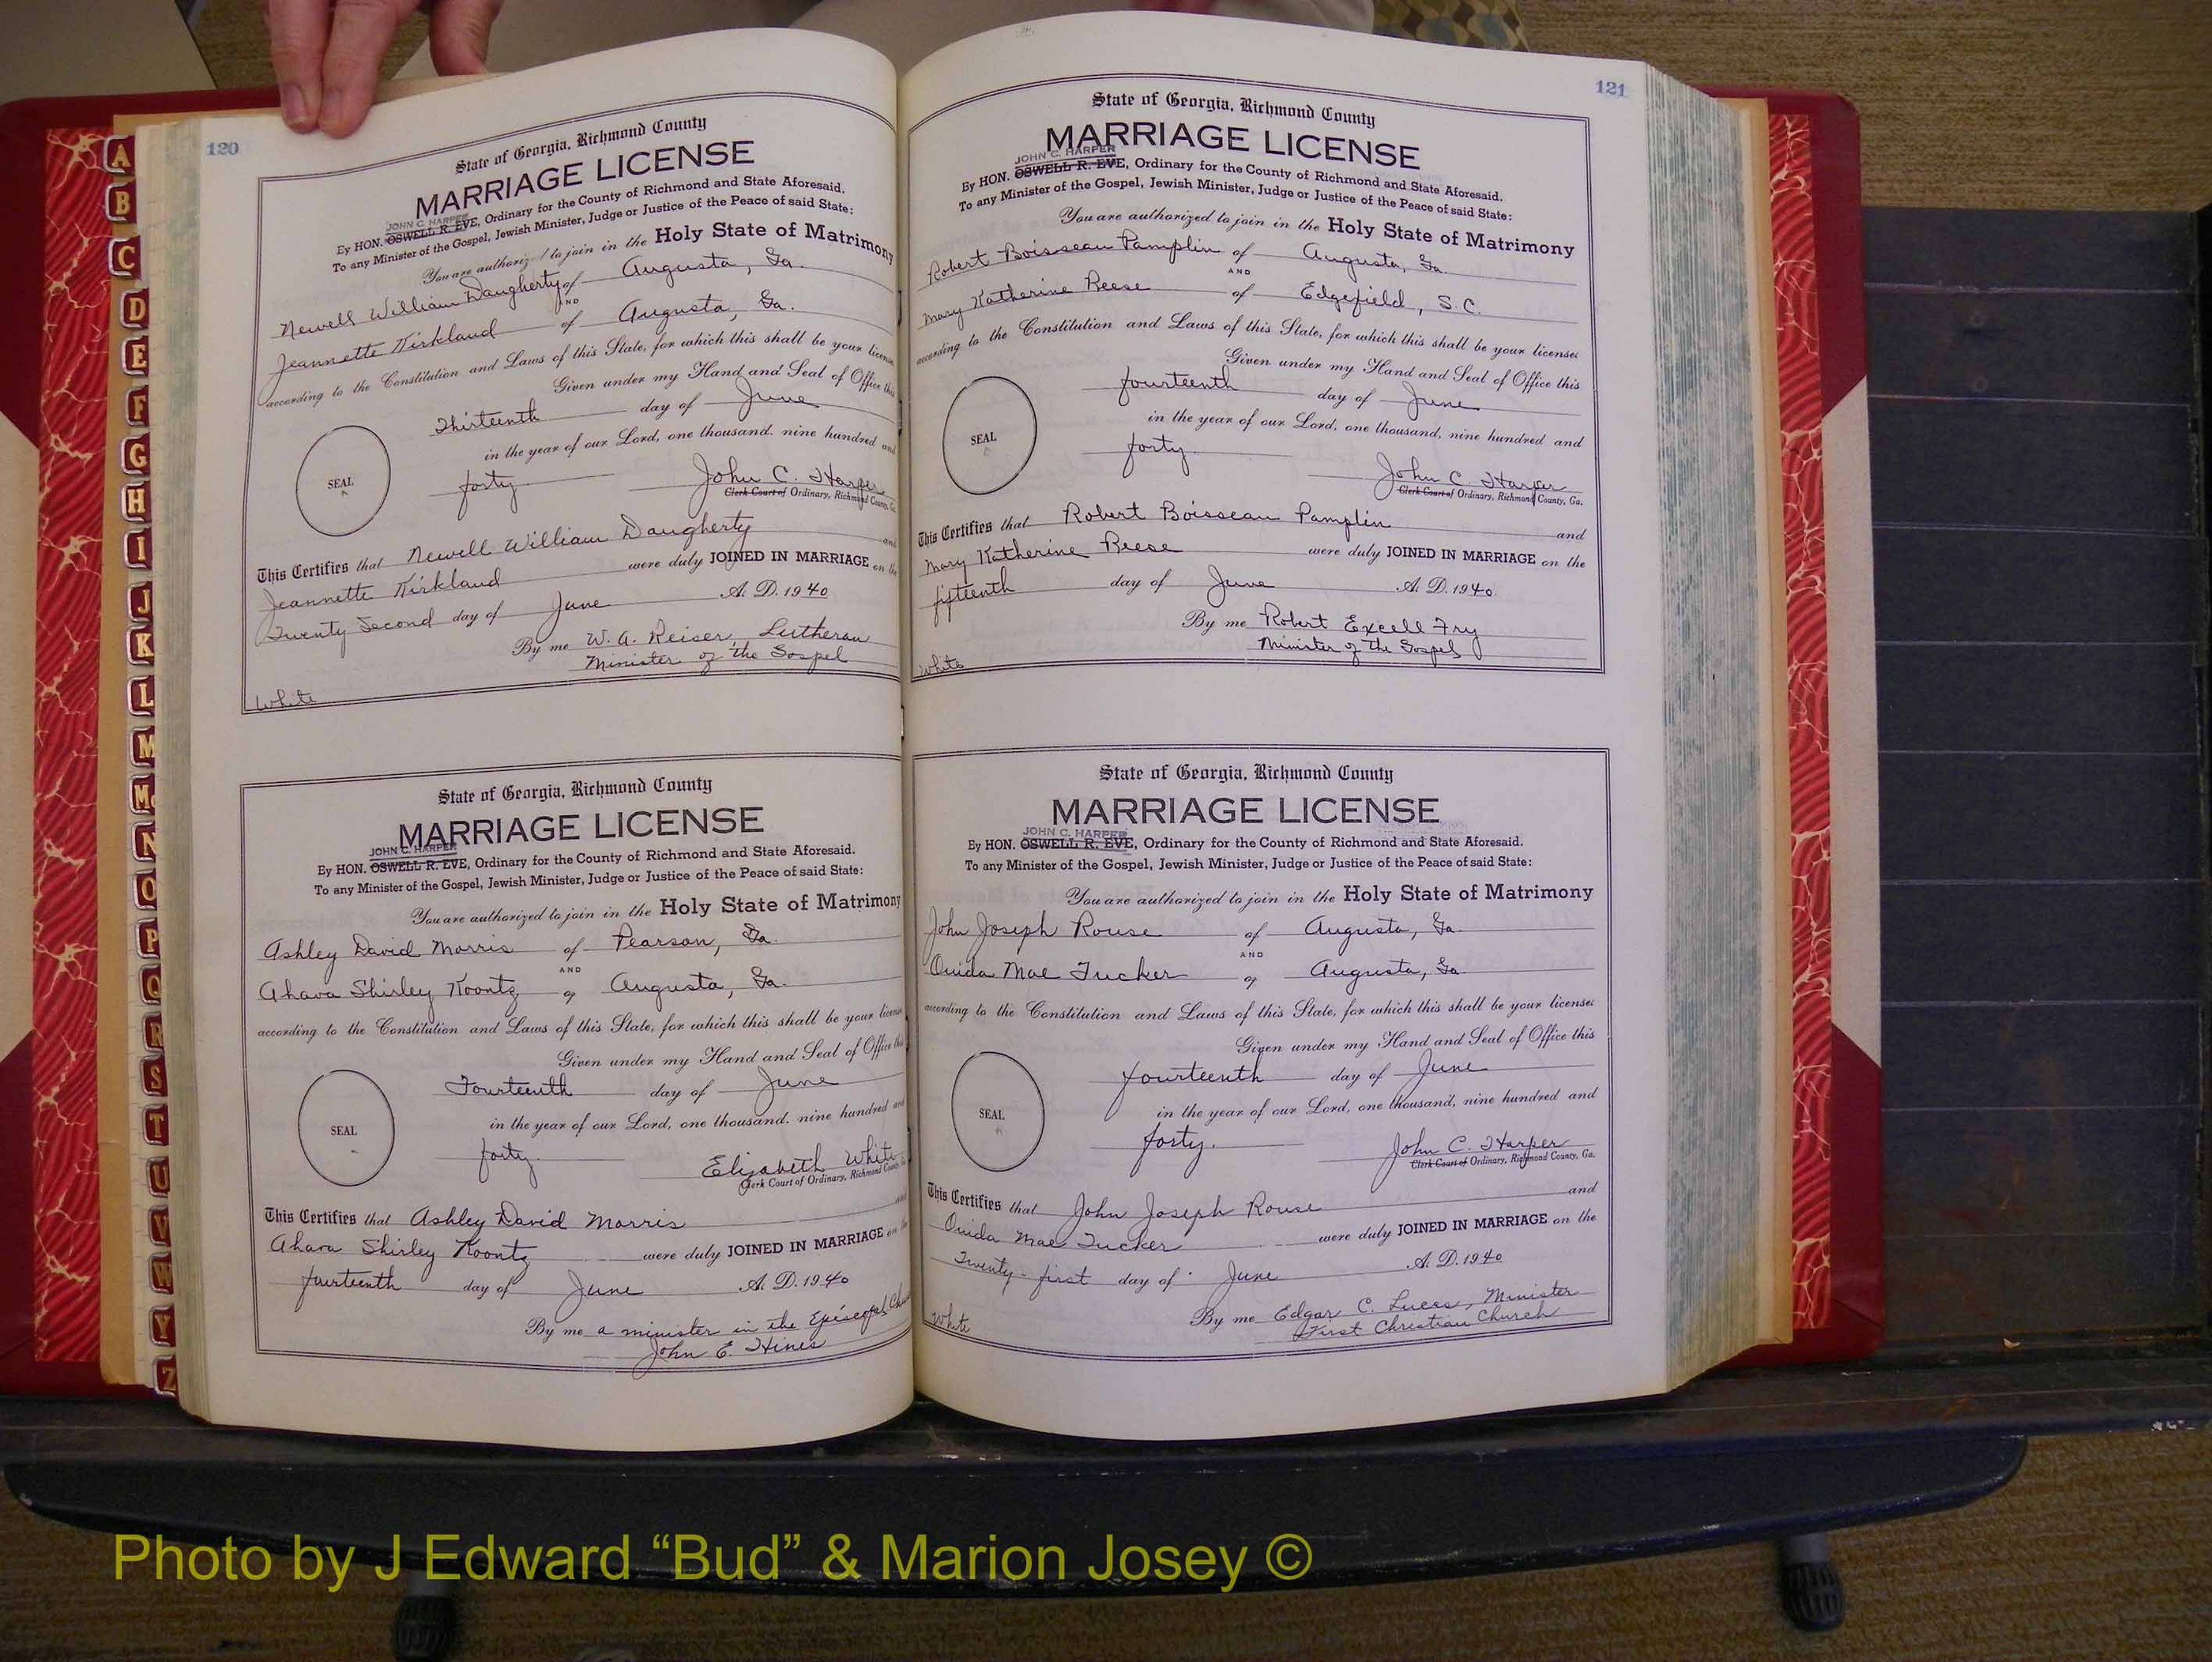 120
State of Georgia, Richmond County
MARRIAGE LICENSE
JOHN C. HARPER
By HON. OSWELL R. EVE, Ordinary for the County of Richmond and State Aforesaid.
To any Minister of the Gospel, Jewish Minister, Judge or Justice of the Peace of said State:
You are authorized to join in the Holy State of Matrimony
Newell William Daugherty of Augusta, Ga.
AND
Jeannette Kirkland of Augusta, Ga.
according to the Constitution and Laws of this State, for which this shall be your license
Given under my Hand and Seal of Office this
Thirteenth day of June
in the year of our Lord, one thousand, nine hundred and
SEAL
forty. John C. Harper
Clerk Court of Ordinary, Richmond County, Ga.
This Certifies that Newell William Daugherty and
Jeannette Kirkland were duly JOINED IN MARRIAGE on the
Twenty Second day of June A. D. 1940
By me W. A. Reiser, Lutheran
Minister of the Gospel
White
State of Georgia, Richmond County
MARRIAGE LICENSE
JOHN C. HARPER
By HON. OSWELL R. EVE, Ordinary for the County of Richmond and State Aforesaid.
To any Minister of the Gospel, Jewish Minister, Judge or Justice of the Peace of said State:
You are authorized to join in the Holy State of Matrimony
Ashley David Morris of Pearson, Ga.
AND
Ahava Shirley Koontz of Augusta, Ga.
according to the Constitution and Laws of this State, for which this shall be your license
Given under my Hand and Seal of Office this
Fourteenth day of June
in the year of our Lord, one thousand, nine hundred and
SEAL
forty. Elizabeth White
Clerk Court of Ordinary, Richmond County, Ga.
This Certifies that Ashley David Morris and
Ahava Shirley Koontz were duly JOINED IN MARRIAGE on the
fourteenth day of June A. D. 1940
By me a minister in the Episcopal
John E. Hines
121
State of Georgia, Richmond County
MARRIAGE LICENSE
JOHN C. HARPER
By HON. OSWELL R. EVE, Ordinary for the County of Richmond and State Aforesaid.
To any Minister of the Gospel, Jewish Minister, Judge or Justice of the Peace of said State:
You are authorized to join in the Holy State of Matrimony
Robert Boisseau Pamplin of Augusta, Ga.
AND
Mary Katherine Reese of Edgefield, S.C.
according to the Constitution and Laws of this State, for which this shall be your license:
Given under my Hand and Seal of Office this
fourteenth day of June
in the year of our Lord, one thousand, nine hundred and
SEAL
forty. John C. Harper
Clerk Court of Ordinary, Richmond County, Ga.
This Certifies that Robert Boisseau Pamplin and
Mary Katherine Reese were duly JOINED IN MARRIAGE on the
fifteenth day of June A. D. 1940.
By me Robert Excell Fry
Minister of the Gospel
White
State of Georgia, Richmond County
MARRIAGE LICENSE
JOHN C. HARPER
By HON. OSWELL R. EVE, Ordinary for the County of Richmond and State Aforesaid.
To any Minister of the Gospel, Jewish Minister, Judge or Justice of the Peace of said State:
You are authorized to join in the Holy State of Matrimony
John Joseph Rouse of Augusta, Ga.
AND
Ouida Mae Tucker of Augusta, Ga.
according to the Constitution and Laws of this State, for which this shall be your license:
Given under my Hand and Seal of Office this
fourteenth day of June
in the year of our Lord, one thousand, nine hundred and
SEAL
forty. John C. Harper
Clerk Court of Ordinary, Richmond County, Ga.
This Certifies that John Joseph Rouse and
Ouida Mae Tucker were duly JOINED IN MARRIAGE on the
Twenty-first day of June A. D. 1940
By me Edgar C. Lucas, Minister
First Christian Church
White
A
B
C
D
E
F
G
H
I
J
K
L
M
Mc
N
O
P
Q
R
S
T
U
V
W
Y
Z
Photo by J Edward “Bud” & Marion Josey ©